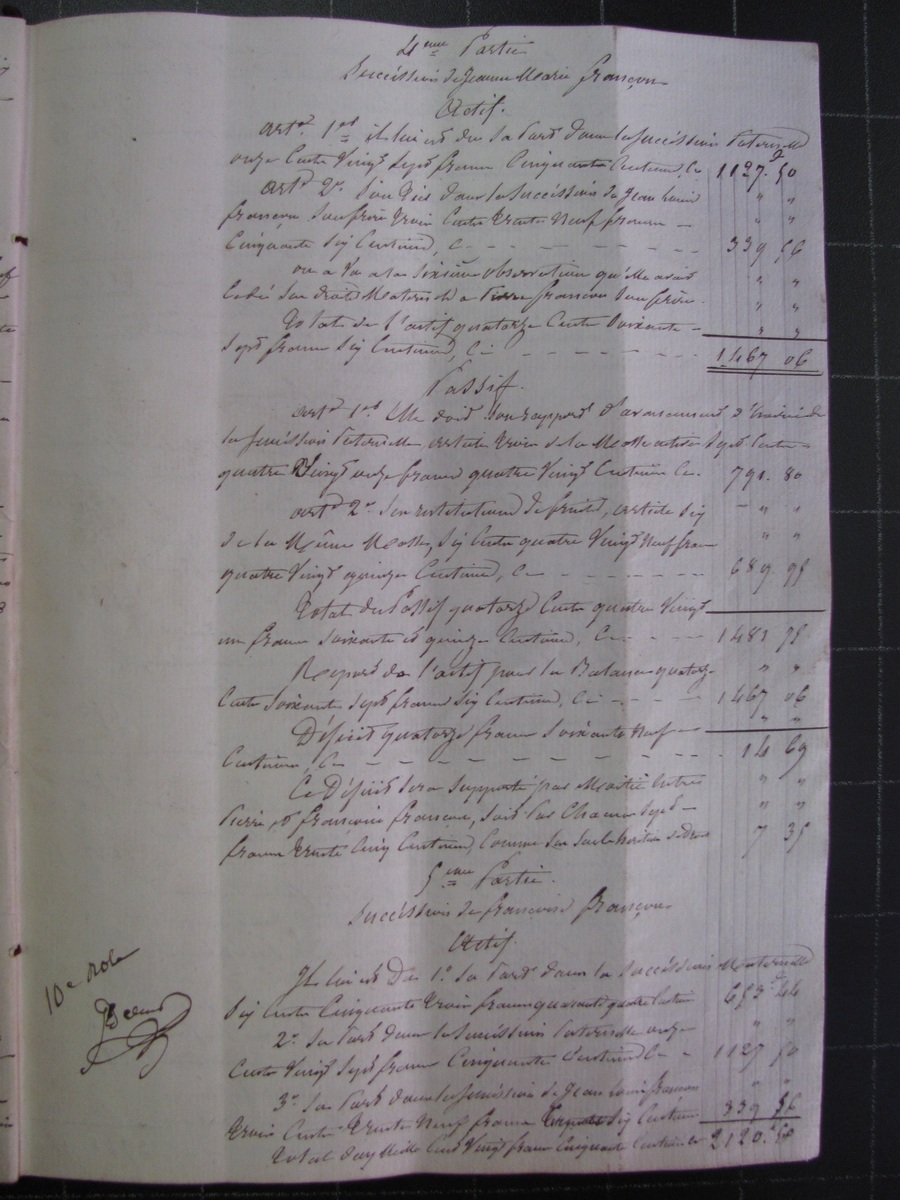 4eme Partie
Succéssion de Jeanne Marie françon
Actif.
art. 1er il lui est du sa Part dans la Succéssion Paternelle
onze Cents Vingt Sept francs Cinquante Centimes, Ci 1127.f 50
art. 2e. Son dies dans la Succéssion de Jean Louis " "
françon son frère trois Cents trente Neuf francs — " "
Cinquante Six Centimes, Ci — — — — — — 339 56
on a Vu a la Sixième observation qu'Elle avait " "
Cédé Ses droits Maternels a Pierre françon Son frère. " "
Total de l'actif quatorze Cents Soixante — " "
Sept francs Six Centimes, Ci — — — — — — 1467 06
Passif.
art. 1er Elle doit Son rapport d'avancement d'hoirie de
la Succéssion Paternelle, article trois de la Masse active Sept Cents
quatre Vingt onze francs quatre Vingt Centimes Ci 791. 80
art. 2e. Son restitution de fruits, article Six — " "
de la Même Masse, Six Cents quatre Vingt Neuf francs " "
quatre Vingt quinze Centimes, Ci — — — — — 689 95
Total du Passif quatorze Cents quatre Vingt
un francs Soixante et quinze Centimes, Ci — — — 1481 75
Report de l'actif pour la Balance quatorze " "
Cents Soixante Sept francs Six Centimes, Ci — — — 1467 06
Déficit quatorze francs Soixante Neuf — " "
Centimes, Ci — — — — — — — — 14 69
Ce Déficit Sera Supporté par Moitié entre " "
Pierre et françoise françon, Soit Par Chacun Sept — " "
francs trente Cinq Centimes, Comme Ses Seuls héritiers de droit 7 35
5eme Partie.
Succéssion de françoise françon
Actif.
Il lui est Du 1o. Sa Part dans la Succéssion Maternelle
Six Cents Cinquante trois francs quarante quatre Centimes 653.f 44
2o. Sa Part dans la Succéssion Paternelle onze " "
Cents Vingt Sept francs Cinquante Centimes Ci — 1127 50
3o. Sa Part dans la Succéssion de Jean Louis françon " "
trois Cents trente Neuf francs Six Centimes 339 56
Total deux Mille Cent Vingt francs Cinquante Centimes Ci 2120.f 50
10e Role